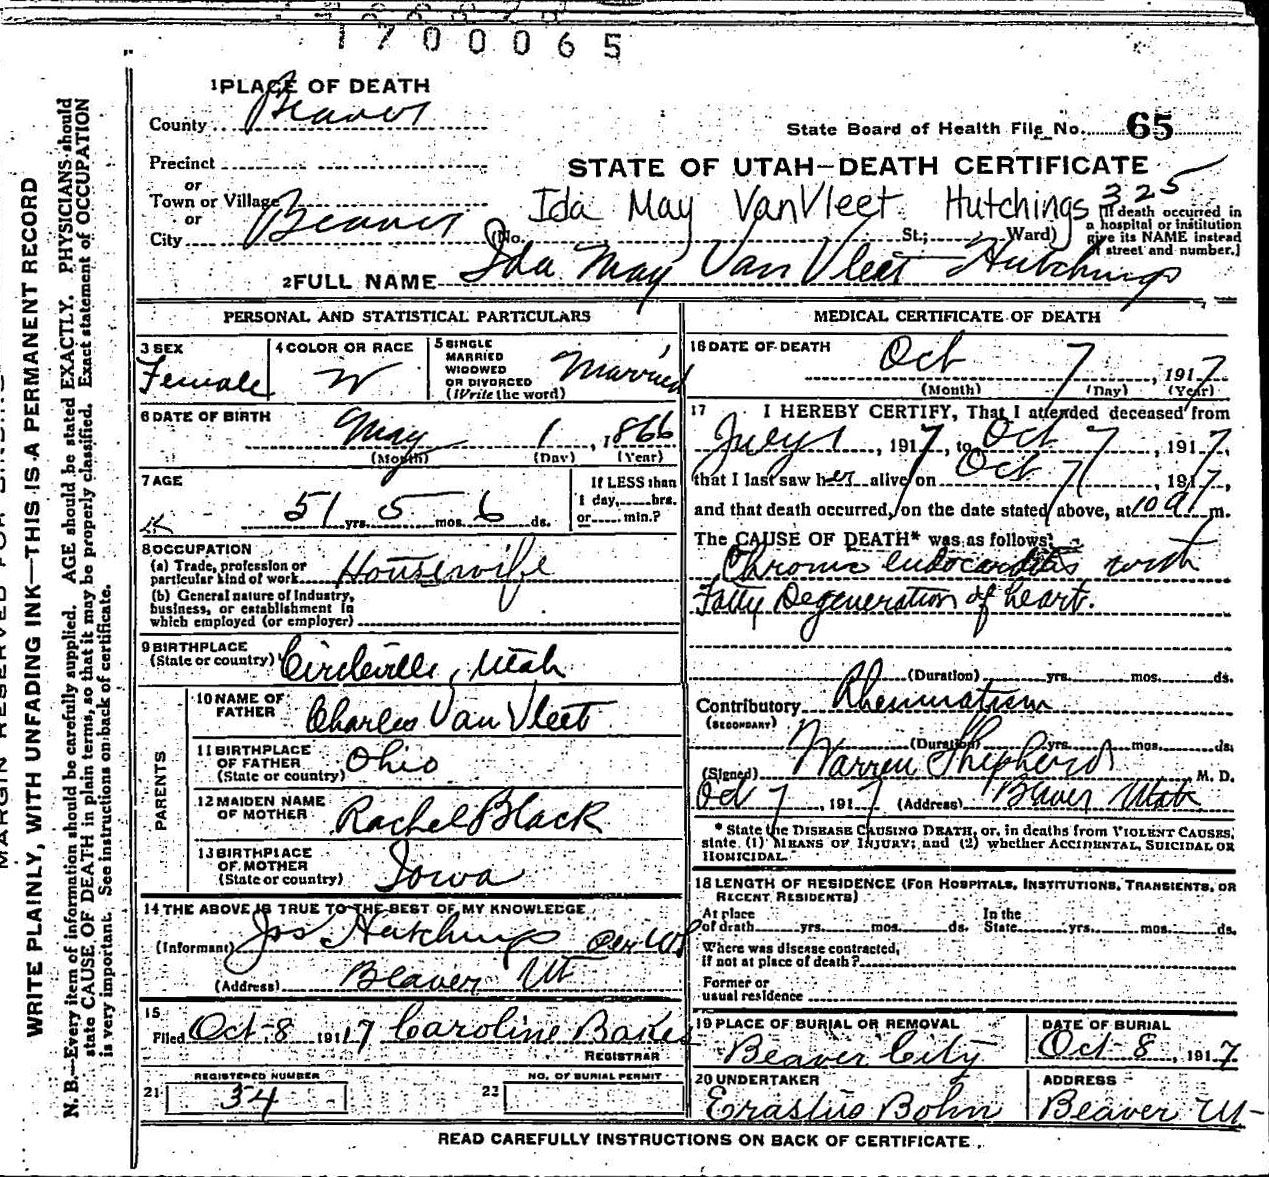 1700065
1 PLACE OF DEATH
County Beaver
State Board of Health File No. 65
Precinct
STATE OF UTAH—DEATH CERTIFICATE
or
Town or Village
Ida May VanVleet Hutchings 325
or
City Beaver (No. St.; Ward)
[If death occurred in
a hospital or institution
give its NAME instead
of street and number.]
2 FULL NAME Ida May Van Vleet Hutchings
PERSONAL AND STATISTICAL PARTICULARS
3 SEX
Female
4 COLOR OR RACE
W
5 SINGLE
MARRIED
WIDOWED
OR DIVORCED
(Write the word)
Married
6 DATE OF BIRTH
May 1, 1866
(Month) (Day) (Year)
7 AGE
51 yrs. 5 mos. 6 ds.
If LESS than
1 day, hrs.
or min.?
8 OCCUPATION
(a) Trade, profession or
particular kind of work Housewife
(b) General nature of Industry,
business, or establishment in
which employed (or employer)
9 BIRTHPLACE
(State or country) Circleville, Utah
PARENTS
10 NAME OF
FATHER Charles Van Vleet
11 BIRTHPLACE
OF FATHER
(State or country) Ohio
12 MAIDEN NAME
OF MOTHER Rachel Black
13 BIRTHPLACE
OF MOTHER
(State or country) Iowa
14 THE ABOVE IS TRUE TO THE BEST OF MY KNOWLEDGE
(Informant) Jos Hutchings
(Address) Beaver Ut
15
Filed Oct-8 1917 Caroline Bakes
REGISTRAR
REGISTERED NUMBER
21 34
NO. OF BURIAL PERMIT
22
MEDICAL CERTIFICATE OF DEATH
16 DATE OF DEATH
Oct 7, 1917
(Month) (Day) (Year)
17 I HEREBY CERTIFY, That I attended deceased from
July 1, 1917, to Oct 7, 1917,
that I last saw her alive on Oct 7, 1917,
and that death occurred, on the date stated above, at 10 a m.
The CAUSE OF DEATH* was as follows:
Chronic endocarditis with
Fatty Degeneration of heart.
(Duration) yrs. mos. ds.
Contributory Rheumatism
(SECONDARY)
(Duration) yrs. mos. ds.
(Signed) Warren Shepherd M. D.
Oct 7, 1917 (Address) Beaver Utah
* State the DISEASE CAUSING DEATH, or, in deaths from VIOLENT CAUSES,
state (1) MEANS OF INJURY; and (2) whether ACCIDENTAL, SUICIDAL OR
HOMICIDAL.
18 LENGTH OF RESIDENCE (FOR HOSPITALS, INSTITUTIONS, TRANSIENTS, OR
RECENT RESIDENTS)
At place
of death yrs. mos. ds.
In the
State yrs. mos. ds.
Where was disease contracted,
if not at place of death?
Former or
usual residence
19 PLACE OF BURIAL OR REMOVAL
Beaver City
DATE OF BURIAL
Oct-8, 1917.
20 UNDERTAKER
Erastus Bohn
ADDRESS
Beaver Ut-
READ CAREFULLY INSTRUCTIONS ON BACK OF CERTIFICATE.
WRITE PLAINLY, WITH UNFADING INK—THIS IS A PERMANENT RECORD
N. B.—Every item of information should be carefully supplied. AGE should be stated EXACTLY. PHYSICIANS should
state CAUSE OF DEATH in plain terms, so that it may be properly classified. Exact statement of OCCUPATION
is very important. See instructions on back of certificate.